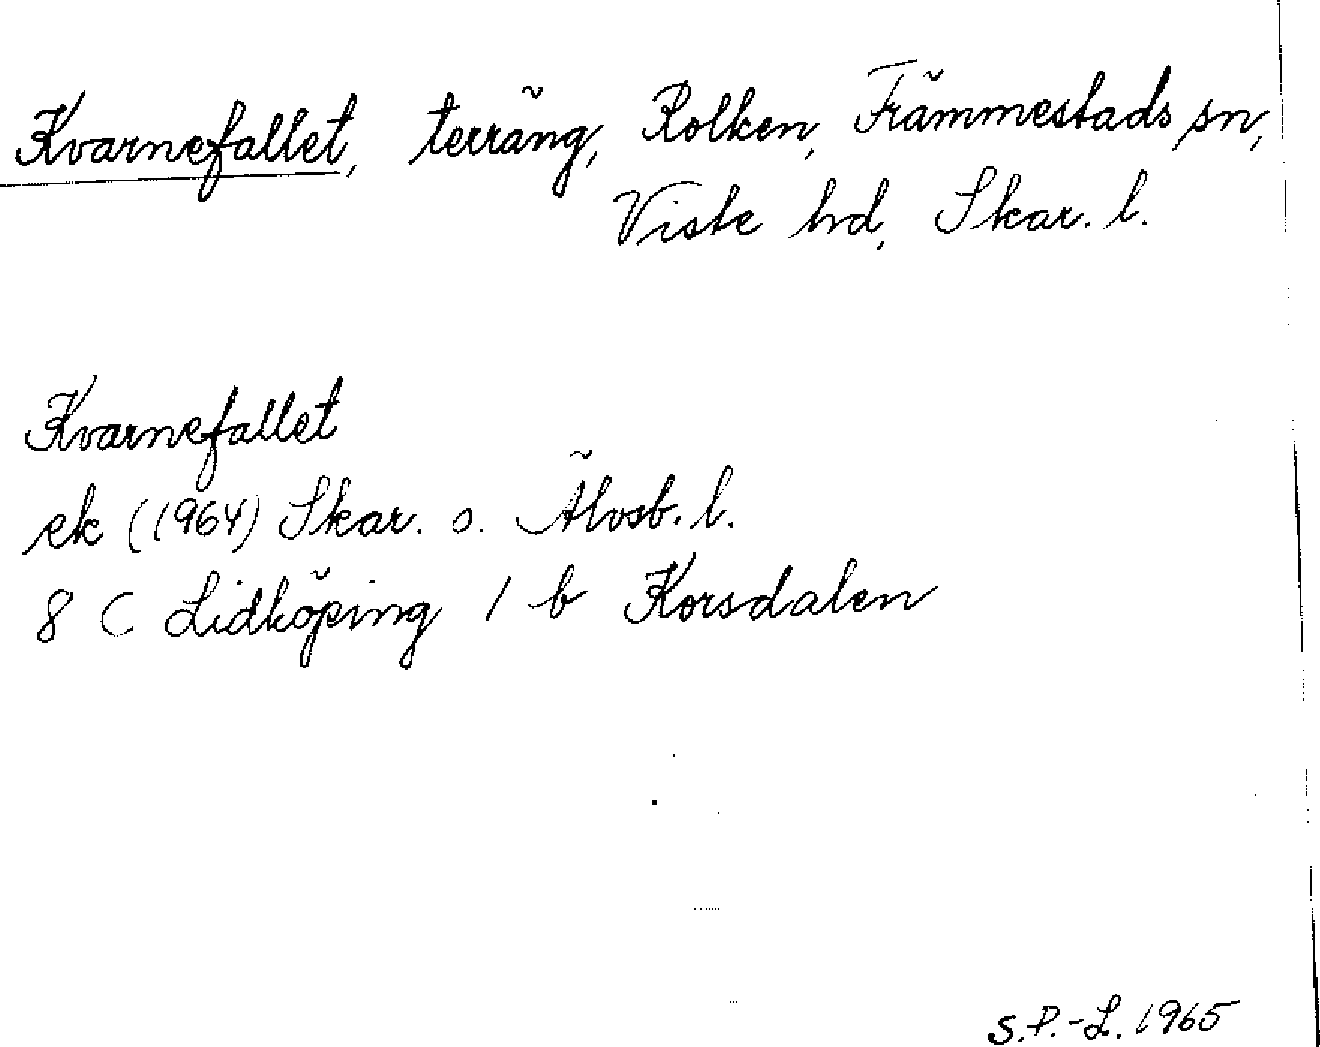 Kvarnefallet, terräng, Rolken, Främmestads sn,
Viste hd, Skar. l.
Kvarnefallet
ek (1964) Skar. o. Älvsb. l.
8 C Lidköping 1 b Korsdalen
S.P.-L. 1965